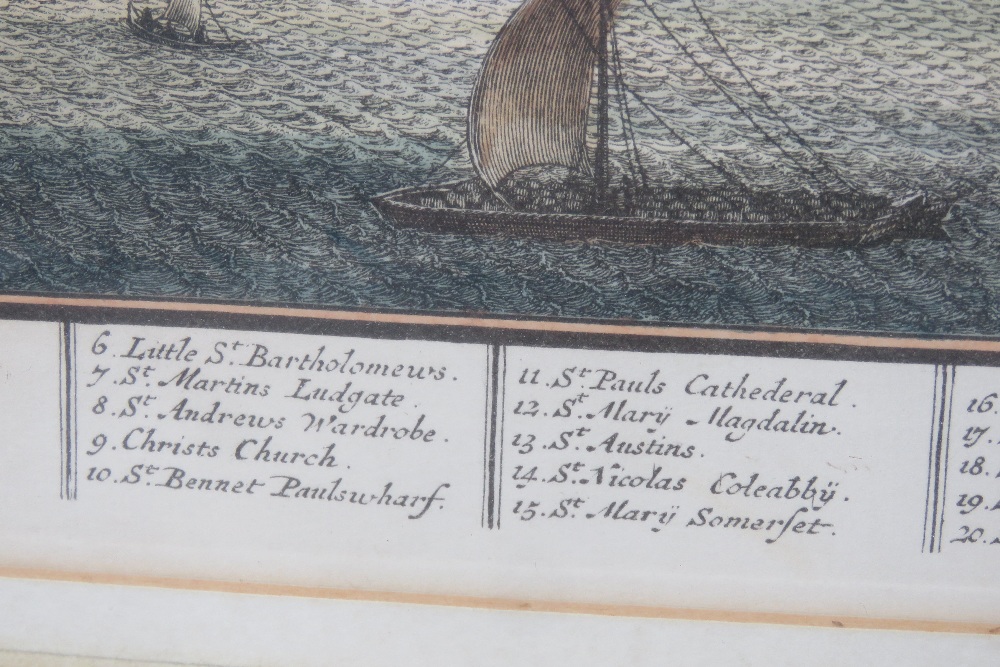 6. Little St Bartholomews.
7. St Martins Ludgate.
8. St Andrews Wardrobe.
9. Christs Church.
10. St Bennet Paulswharf.
11. St Pauls Cathederal.
12. St Marÿ Magdalin.
13. St Austins.
14. St Nicolas Coleabbÿ.
15. St Marÿ Somerſet.
16.
17.
18.
19.
20.